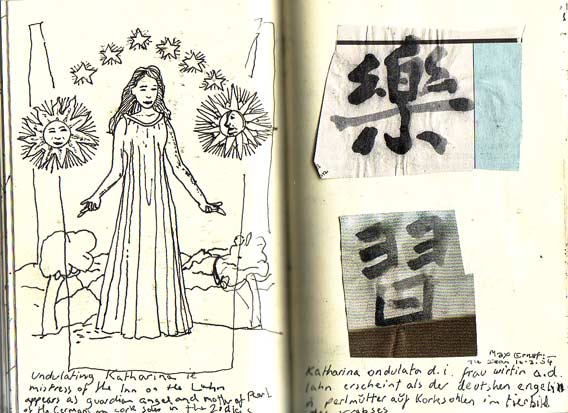 undulating Katharina ie
mistress of the Inn on the Lahn
appears as guardian angel and mother of Pearl
of the Germans on cork soles in the Zodiac
樂
習
Max Ernst
Katharina ondulata d.i. frau wirtin a.d.
lahn erscheint als der deutshen engel
perlmutter auf korksohlen im tierbild
des krebses